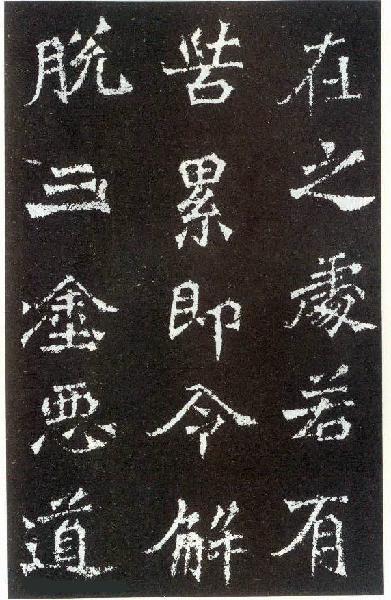 在之處若有
苦累即令解
脫三塗惡道